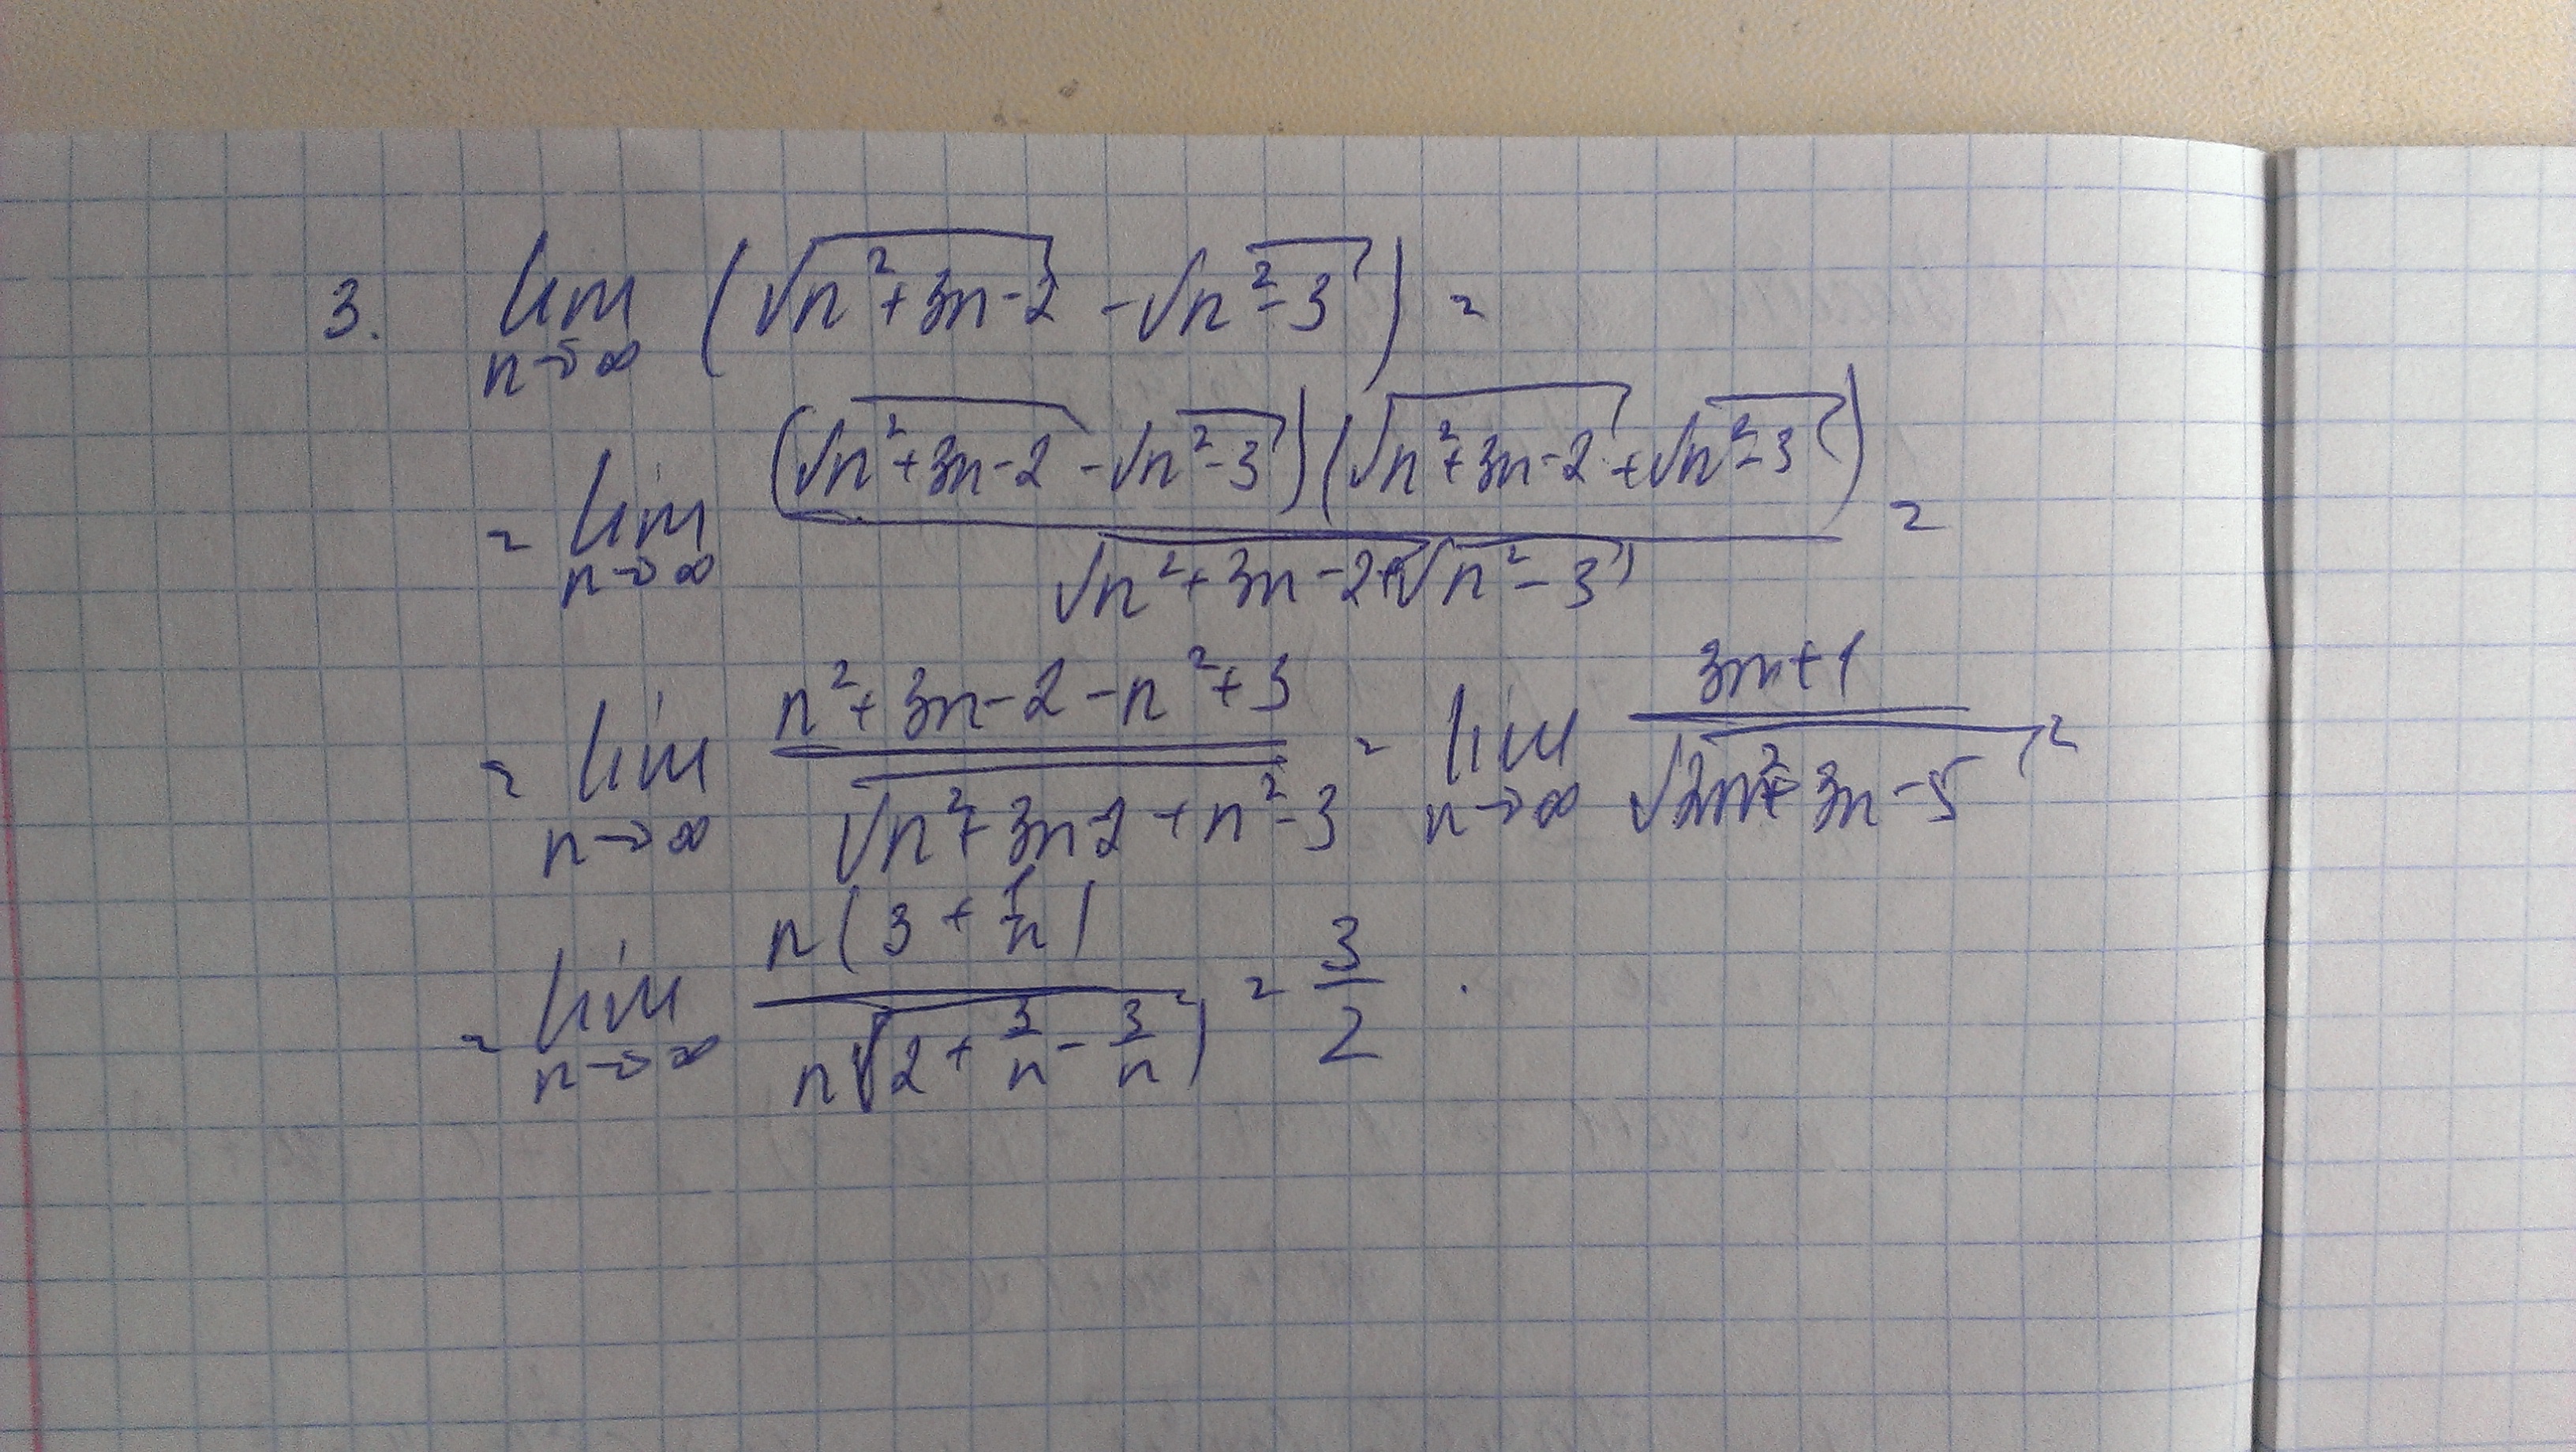 3. lim n→∞ (√(n²+3n-2) - √(n²-3)) =
= lim n→∞ (√(n²+3n-2) - √(n²-3))(√(n²+3n-2) + √(n²-3)) / (√(n²+3n-2) + √(n²-3)) =
= lim n→∞ (n²+3n-2-n²+3) / √(n²+3n-2+n²-3) = lim n→∞ (3n+1) / √(2n²+3n-5) =
= lim n→∞ n(3+1/n) / (n√(2+3/n-3/n)) = 3/2.